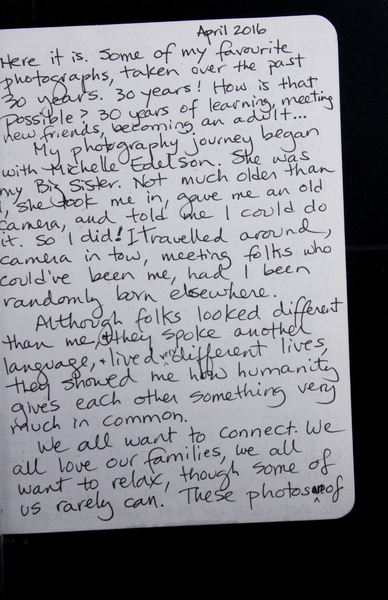 April 2016
Here it is. Some of my favourite
photographs, taken over the past
30 years. 30 years! How is that
possible? 30 years of learning, meeting
new friends, becoming an adult...
My photography journey began
with Michelle Edelson. She was
my Big Sister. Not much older than
I, she took me in, gave me an old
camera, and told me I could do
it. So I did! I travelled around,
camera in tow, meeting folks who
could've been me, had I been
randomly born elsewhere.
Although folks looked different
than me, + they spoke another
language, + lived very different lives,
they showed me how humanity
gives each other something very
much in common.
We all want to connect. We
all love our families, we all
want to relax, though some of
us rarely can. These photos are of